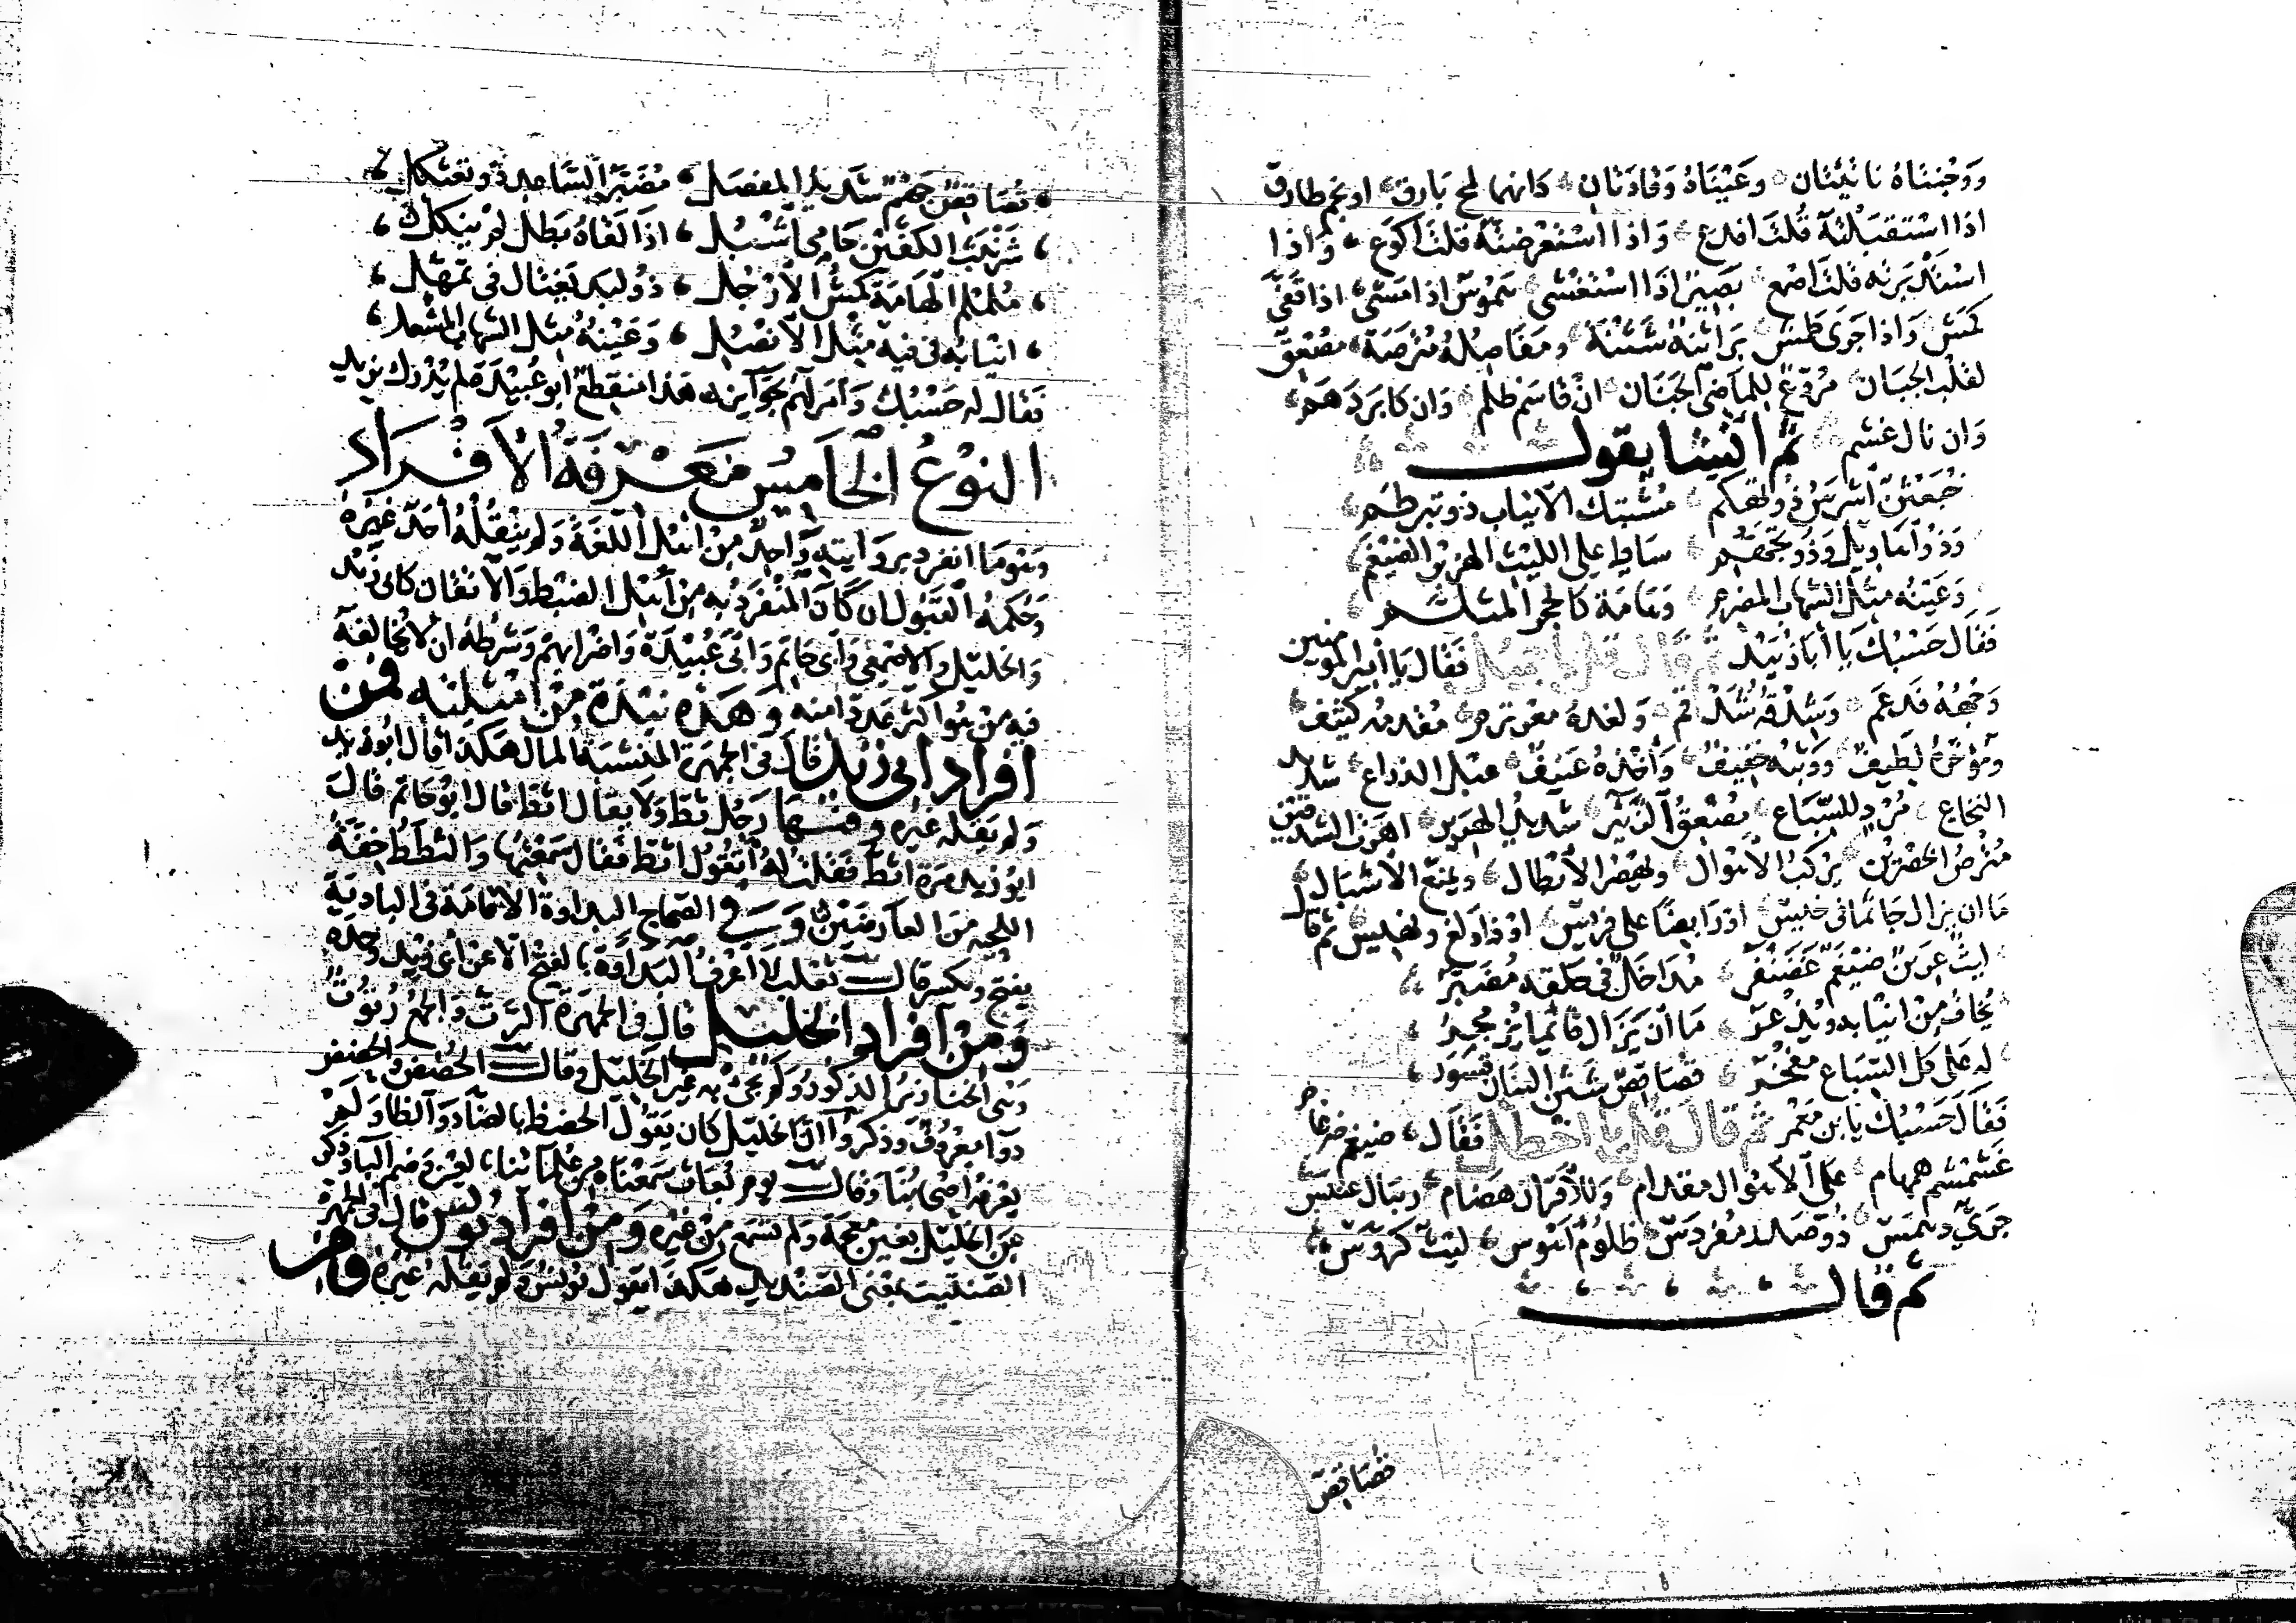 ووجنتاه ناتئتان وعيناه وقادتان كانهما لمح بارق او نجم طارق
اذا استقبلته قلت افدع واذا استعرضته قلت اكوع واذا
استدبرته قلت اصمع بصير اذا استغشى هموس اذا مشى اذا قفى
كمش واذا جرى طمش براثنه شثنة ومفاصله مترصة مصعق
لقلب الجبان مروع للماضي الجنان ان قاسم ظلم وان كابر دهم
وان نال غشم ثم انشا يقول
خبعثن اشوس ذو تهكم مشتبك الانياب ذو تبرطم
وذو اهاويل وذو تجهم ساط على الليث الهزبر الضيغم
وعينه مثل الشهاب المضرم وهامة كالحجر الململم
فقال حسبك يا ابا زبيد ثم قال قل يا جميل فقال يا امير المومنين
وجهه فدغم وشدقه شدقم ولغده معرنزم مقدمه كثيف
وموخره لطيف ووثبه خفيف واخذه عنيف عبل الذراع شديد
النخاع مرد للسباع مصعق الزئير شديد الهرير اهرت الشدقين
مترص الحصرين يركب الاهوال ويهصر الابطال ويمنع الاشبال
ما ان يزال جاثما في خيس او رابضا على فريس او ذا ولغ ونهيس ثم قال
ليث عرين ضيغم غضنفر مداخل في خلقه مضبر
يخاف من انيابه ويذعر ما ان يزال قائما يزمجر
له على كل السباع مفخر قضاقض شثن البنان قسور
فقال حسبك يا بن معمر ثم قال قل يا اخطل فقال ضيغم ضرغام
غشمشم همهام على الاهوال مقدام وللاقران هضام رئبال عنبس
جري دلهمس ذو صدر مفردس ظلوم اهوس ليث كروس
ثم قال
قضاقض
قضاقض جهم شديد المفصل مضبر الساعد ذو تعثكل
شرنبث الكفين حامي اشبل اذا لقاه بطل لم ينكل
ململم الهامة كمش الارجل ذو لبد يغتال في تمهل
انيابه في فيه مثل الانصل وعينه مثل الشهاب المشعل
فقال له حسبك وامر لهم بجوائز هذا منقطع ابو عبيدة لم يدرك يزيد
النوع الخامس معرفة الافراد
وهو ما انفرد بروايته واحد من اهل اللغة ولم ينقله احد غيره
وحكمه القبول ان كان المنفرد به من اهل الضبط والاتقان كابي زيد
والخليل والاصمعي وابي حاتم وابي عبيدة واضرابهم وشرطه ان لا يخالفه
فيه من هو اكثر عددا منه وهذه نبذة من امثلته فمن
افراد ابي زيد قال في الجمهرة المنشبة المال هكذا قال ابو زيد
ولم يقله غيره وفيها رجل ثط ولا يقال اثط قال ابو حاتم قال
ابو زيد مرة اثط فقلت له اتقول اثط فقال سمعتها والثطط خفة
اللحية من العارضين وفي الصحاح البداوة الاقامة في البادية
يفتح ويكسر قال ثعلب لا اعرف البداوة بالفتح الا عن ابي زيد وحده
ومن افراد الخليل قال في الجمهرة الرت والجمع رتوت
وهي الخنازير الذكور ولم يجئ به غير الخليل وقال الحضض والحضض
دوا معروف وذكروا ان الخليل كان يقول الحضظ بالضاد والظا ولم
يعرفه اصحابنا وقال يوم بعاث سمعناه من علمائنا بالعين وضم البا وذكر
عن الخليل بغين معجمة ولم تسمع من غيره ومن افراد يونس قال في الجمهرة
الصنتيت بمعنى الصنديد هكذا يقول يونس ولم يقله غيره ومن